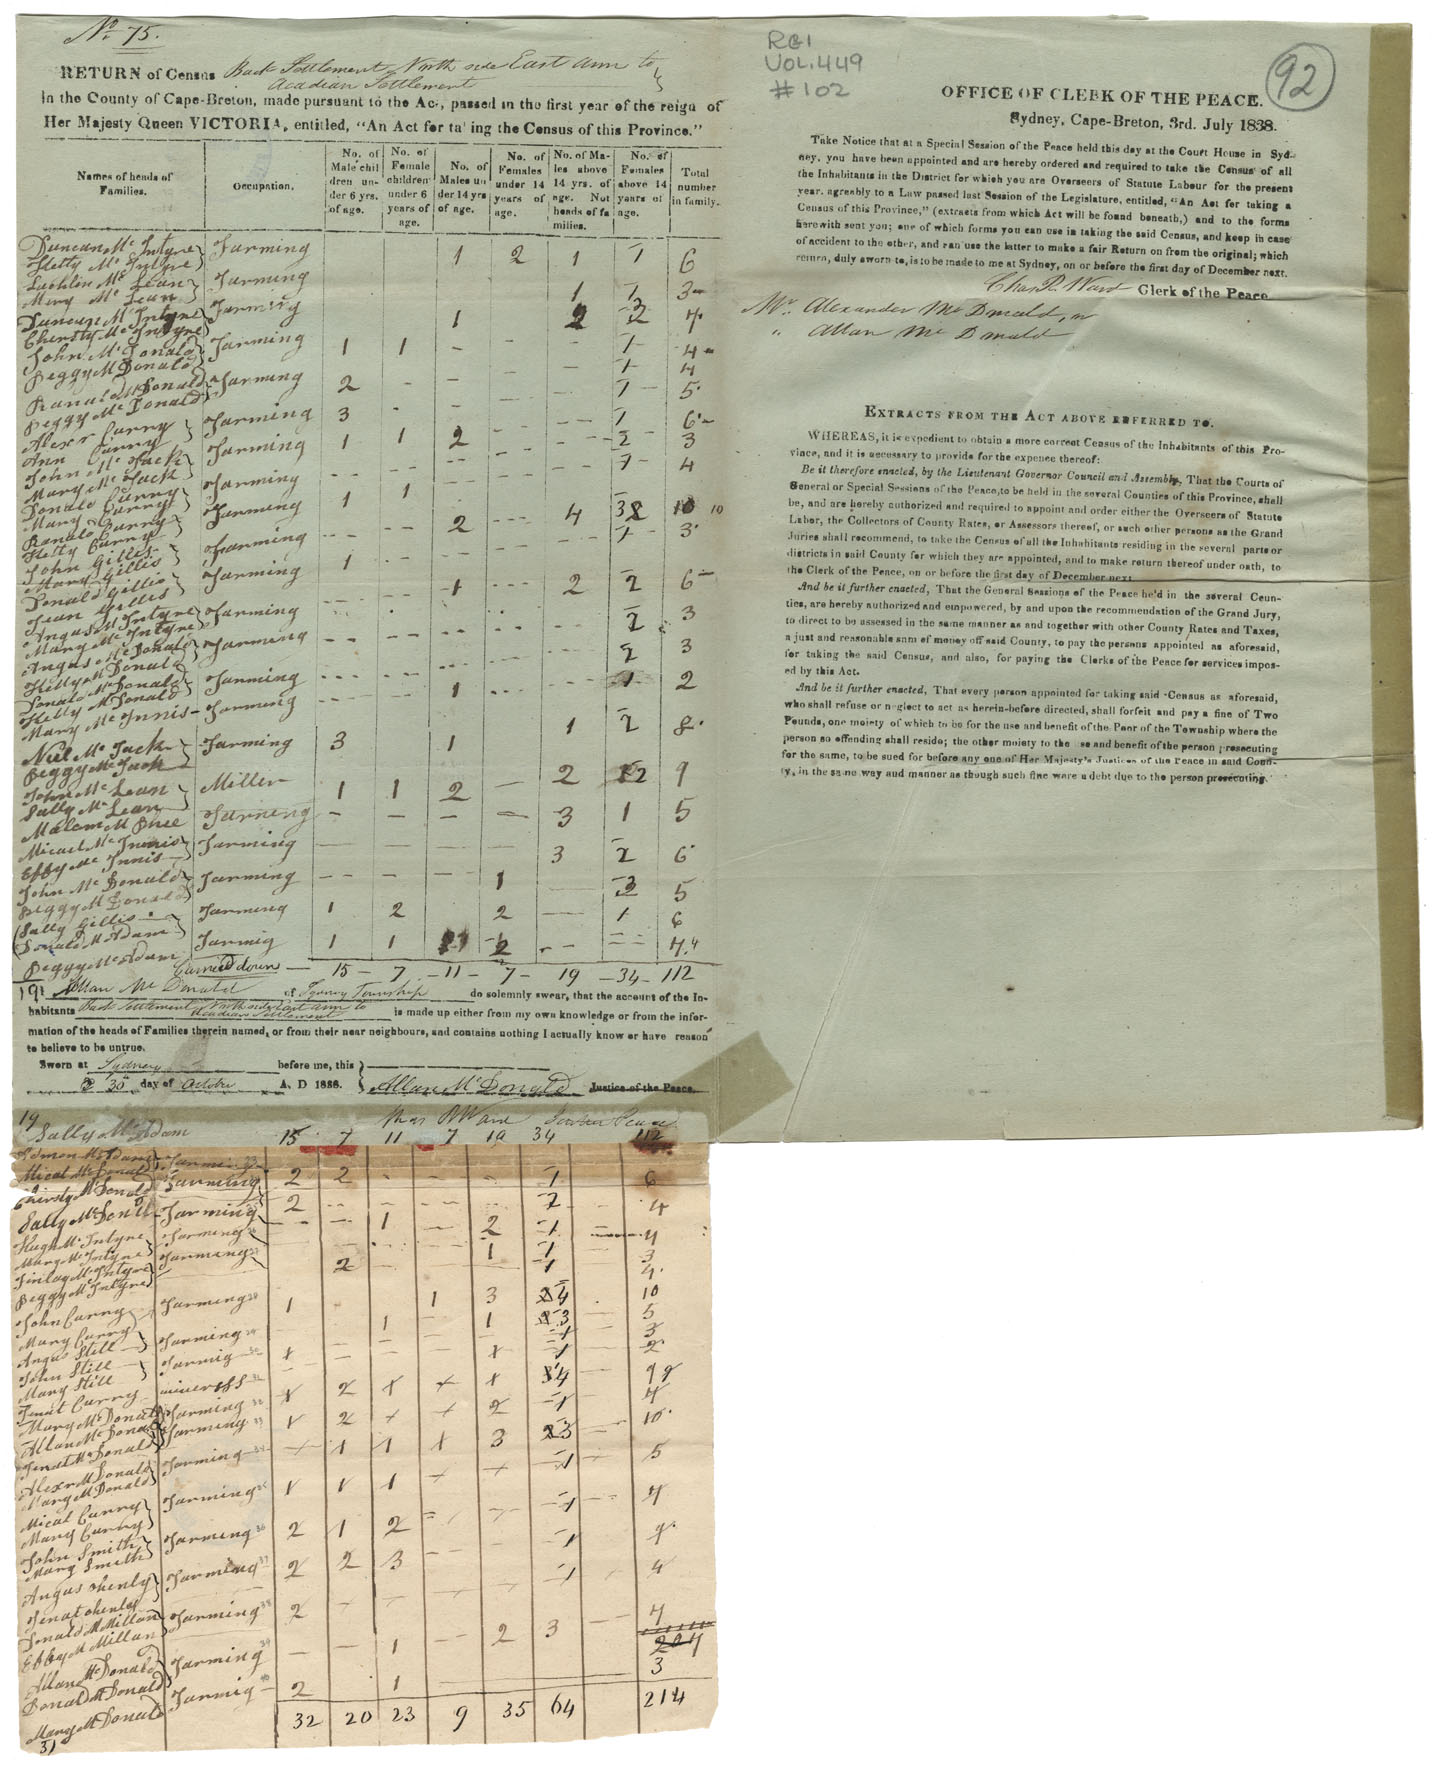 No. 75.
RETURN of Census Back Settlement North side East arm to
Acadian Settlement
in the County of Cape-Breton, made pursuant to the Act, passed in the first year of the reign of
Her Majesty Queen VICTORIA, entitled, "An Act for ta ing the Census of this Province."
Names of heads of Families.
Occupation.
No. of Male chil dren un- der 6 yrs. of age.
No. of Female children under 6 years of age.
No. of Males un der 14 yrs of age.
No. of Females under 14 years of age.
No. of Ma- les above 14 yrs. of age. Not heads of fa milies.
No. of Females above 14 years of age.
Total number in family.
Duncan Mc Intyre Farming 1 2 1 1 6
Hetty Mc Intyre
Lachlin Mc Lean Farming 1 1 3
Mary Mc Lean
Duncan Mc Intyre Farming 1 2 7
Chersty Mc Intyre
John Mc Donald Farming 1 1 - - - 1 4
Peggy Mc Donald
Ranald Mc Donald Farming 2 1 4
Peggy Mc Donald
Alexr Curry Farming 3 1 5
Ann Curry
John Mc Jack Farming 1 1 2 1 6
Mary Mc Jack
Donald Curry Farming 2 3
Mary Curry
Ranald Curry Farming 1 1 1 4
Hetty Curry
John Gillis Farming 2 4 10 10
Mary Gillis
Donald Gillis Farming 1 1 3
Jean Gillis
Angus Mc Intyre Farming 1 2 2 6
Mary Mc Intyre
Angus Mc Donald Farming 2 3
Hetty Mc Donald
Donald Mc Donald Farming 2 3
Hetty Mc Donald
Mary Mc Innis Farming 1 1 2
Niel Mc Jack Farming 3 1 1 2 8
Peggy Mc Jack
John Mc Lean Miller 1 1 2 - 2 2 9
Sally Mc Lean
Malcm M Phee Farming - - - - 3 1 5
Micael Mc Innis Farming 3 2 6
Effy Mc Innis
John Mc Donald Farming - - - 1 3 5
Peggy Mc Donald
Sally Gillis Farming 1 2 2 - 1 6
Donald Mc Adam Farmig 1 1 2 7.4
Peggy Mc Adam
Carried down - 15 - 7 - 11 - 7 - 19 - 34 - 112
19 I Allan Mc Donald of Sydney Township do solemnly swear, that the account of the In-
habitants Back Settlement North side East arm to Acadian Settlement is made up either from my own knowledge or from the infor-
mation of the heads of Families therein named, or from their near neighbours, and contains nothing I actually know or have reason
to believe to be untrue.
Sworn at Sydney before me, this
30 day of October A. D 1838. Allan Mc Donald Justice of the Peace.
Chas R Ward
19
Sally Mc Adam 15 7 11 7 19 34 112
Edmon Mc Adam
Mical Mc Donald Farming 2 2 - - - 1 6
Chirsty Mc Donald Farming
Sally Mc Don'd Farming 2 2 4
Hugh Mc Intyre Farming 1 2 1 4
Mary Mc Intyre
Finlay Mc Intyre Farming 1 1 3
Peggy Mc Intyre 2 1 4
John Curry Farming 1 1 3 4 10
Mary Curry
Angus Still Farming 1 1 3 5
John Still Farmig 1 3
Mary Still
Jenat Curry 1 2
Mary Mc Donald Farming 2 4 9
Allan Mc Donald Farming 2 2 1 4
Jenat Mc Donald
Alexr Mc Donald Farming 1 1 3 3 10
Mary Mc Donald
Mical Curry Farming 1 1 1 1 5
Mary Curry
John Smith Farming 2 1 2 1 7
Mary Smith
Angus Farming 2 2 3 1 9
Jenat
Donald Mc Millan Farming 2 1 4
Effy M Millan
Allan Mc Donald Farming 1 2 3 7
Donald Mc Donald Farmig 2 1 3
204
Mary Mc Donald
31
32 20 23 9 35 64 214
RG1
VOL. 449
#102
92
OFFICE OF CLERK OF THE PEACE.
Sydney, Cape-Breton, 3rd. July 1838.
Take Notice that at a Special Session of the Peace held this day at the Court House in Syd-
ney, you have been appointed and are hereby ordered and required to take the Census of all
the Inhabitants in the District for which you are Overseers of Statute Labour for the present
year, agreably to a Law passed last Session of the Legislature, entitled, "An Act for taking a
Census of this Province," (extracts from which Act will be found beneath,) and to the forms
herewith sent you; one of which forms you can use in taking the said Census, and keep in case
of accident to the other, and can use the latter to make a fair Return on from the original; which
return, duly sworn to, is to be made to me at Sydney, on or before the first day of December next.
Chas R. Ward Clerk of the Peace
Mr. Alexander Mc Donald, or
" Allan Mc Donald
EXTRACTS FROM THE ACT ABOVE REFERRED TO.
WHEREAS, it is expedient to obtain a more correct Census of the Inhabitants of this Pro-
vince, and it is necessary to provide for the expence thereof:
Be it therefore enacted, by the Lieutenant Governor Council and Assembly, That the Courts of
General or Special Sessions of the Peace, to be held in the several Counties of this Province, shall
be, and are hereby authorized and required to appoint and order either the Overseers of Statute
Labor, the Collectors of County Rates, or Assessors thereof, or such other persons as the Grand
Juries shall recommend, to take the Census of all the Inhabitants residing in the several parts or
districts in said County for which they are appointed, and to make return thereof under oath, to
the Clerk of the Peace, on or before the first day of December next.
And be it further enacted, That the General Sessions of the Peace he'd in the several Coun-
ties, are hereby authorized and empowered, by and upon the recommendation of the Grand Jury,
to direct to be assessed in the same manner as and together with other County Rates and Taxes,
a just and reasonable sum of money off said County, to pay the persons appointed as aforesaid,
for taking the said Census, and also, for paying the Clerks of the Peace for services impos-
ed by this Act.
And be it further enacted, That every person appointed for taking said Census as aforesaid,
who shall refuse or neglect to act as herein-before directed, shall forfeit and pay a fine of Two
Pounds, one moiety of which to be for the use and benefit of the Poor of the Township where the
person so offending shall reside; the other moiety to the use and benefit of the person prosecuting
for the same, to be sued for before any one of Her Majesty's Justices of the Peace in said Coun-
ty, in the same way and manner as though such fine were a debt due to the person prosecuting.